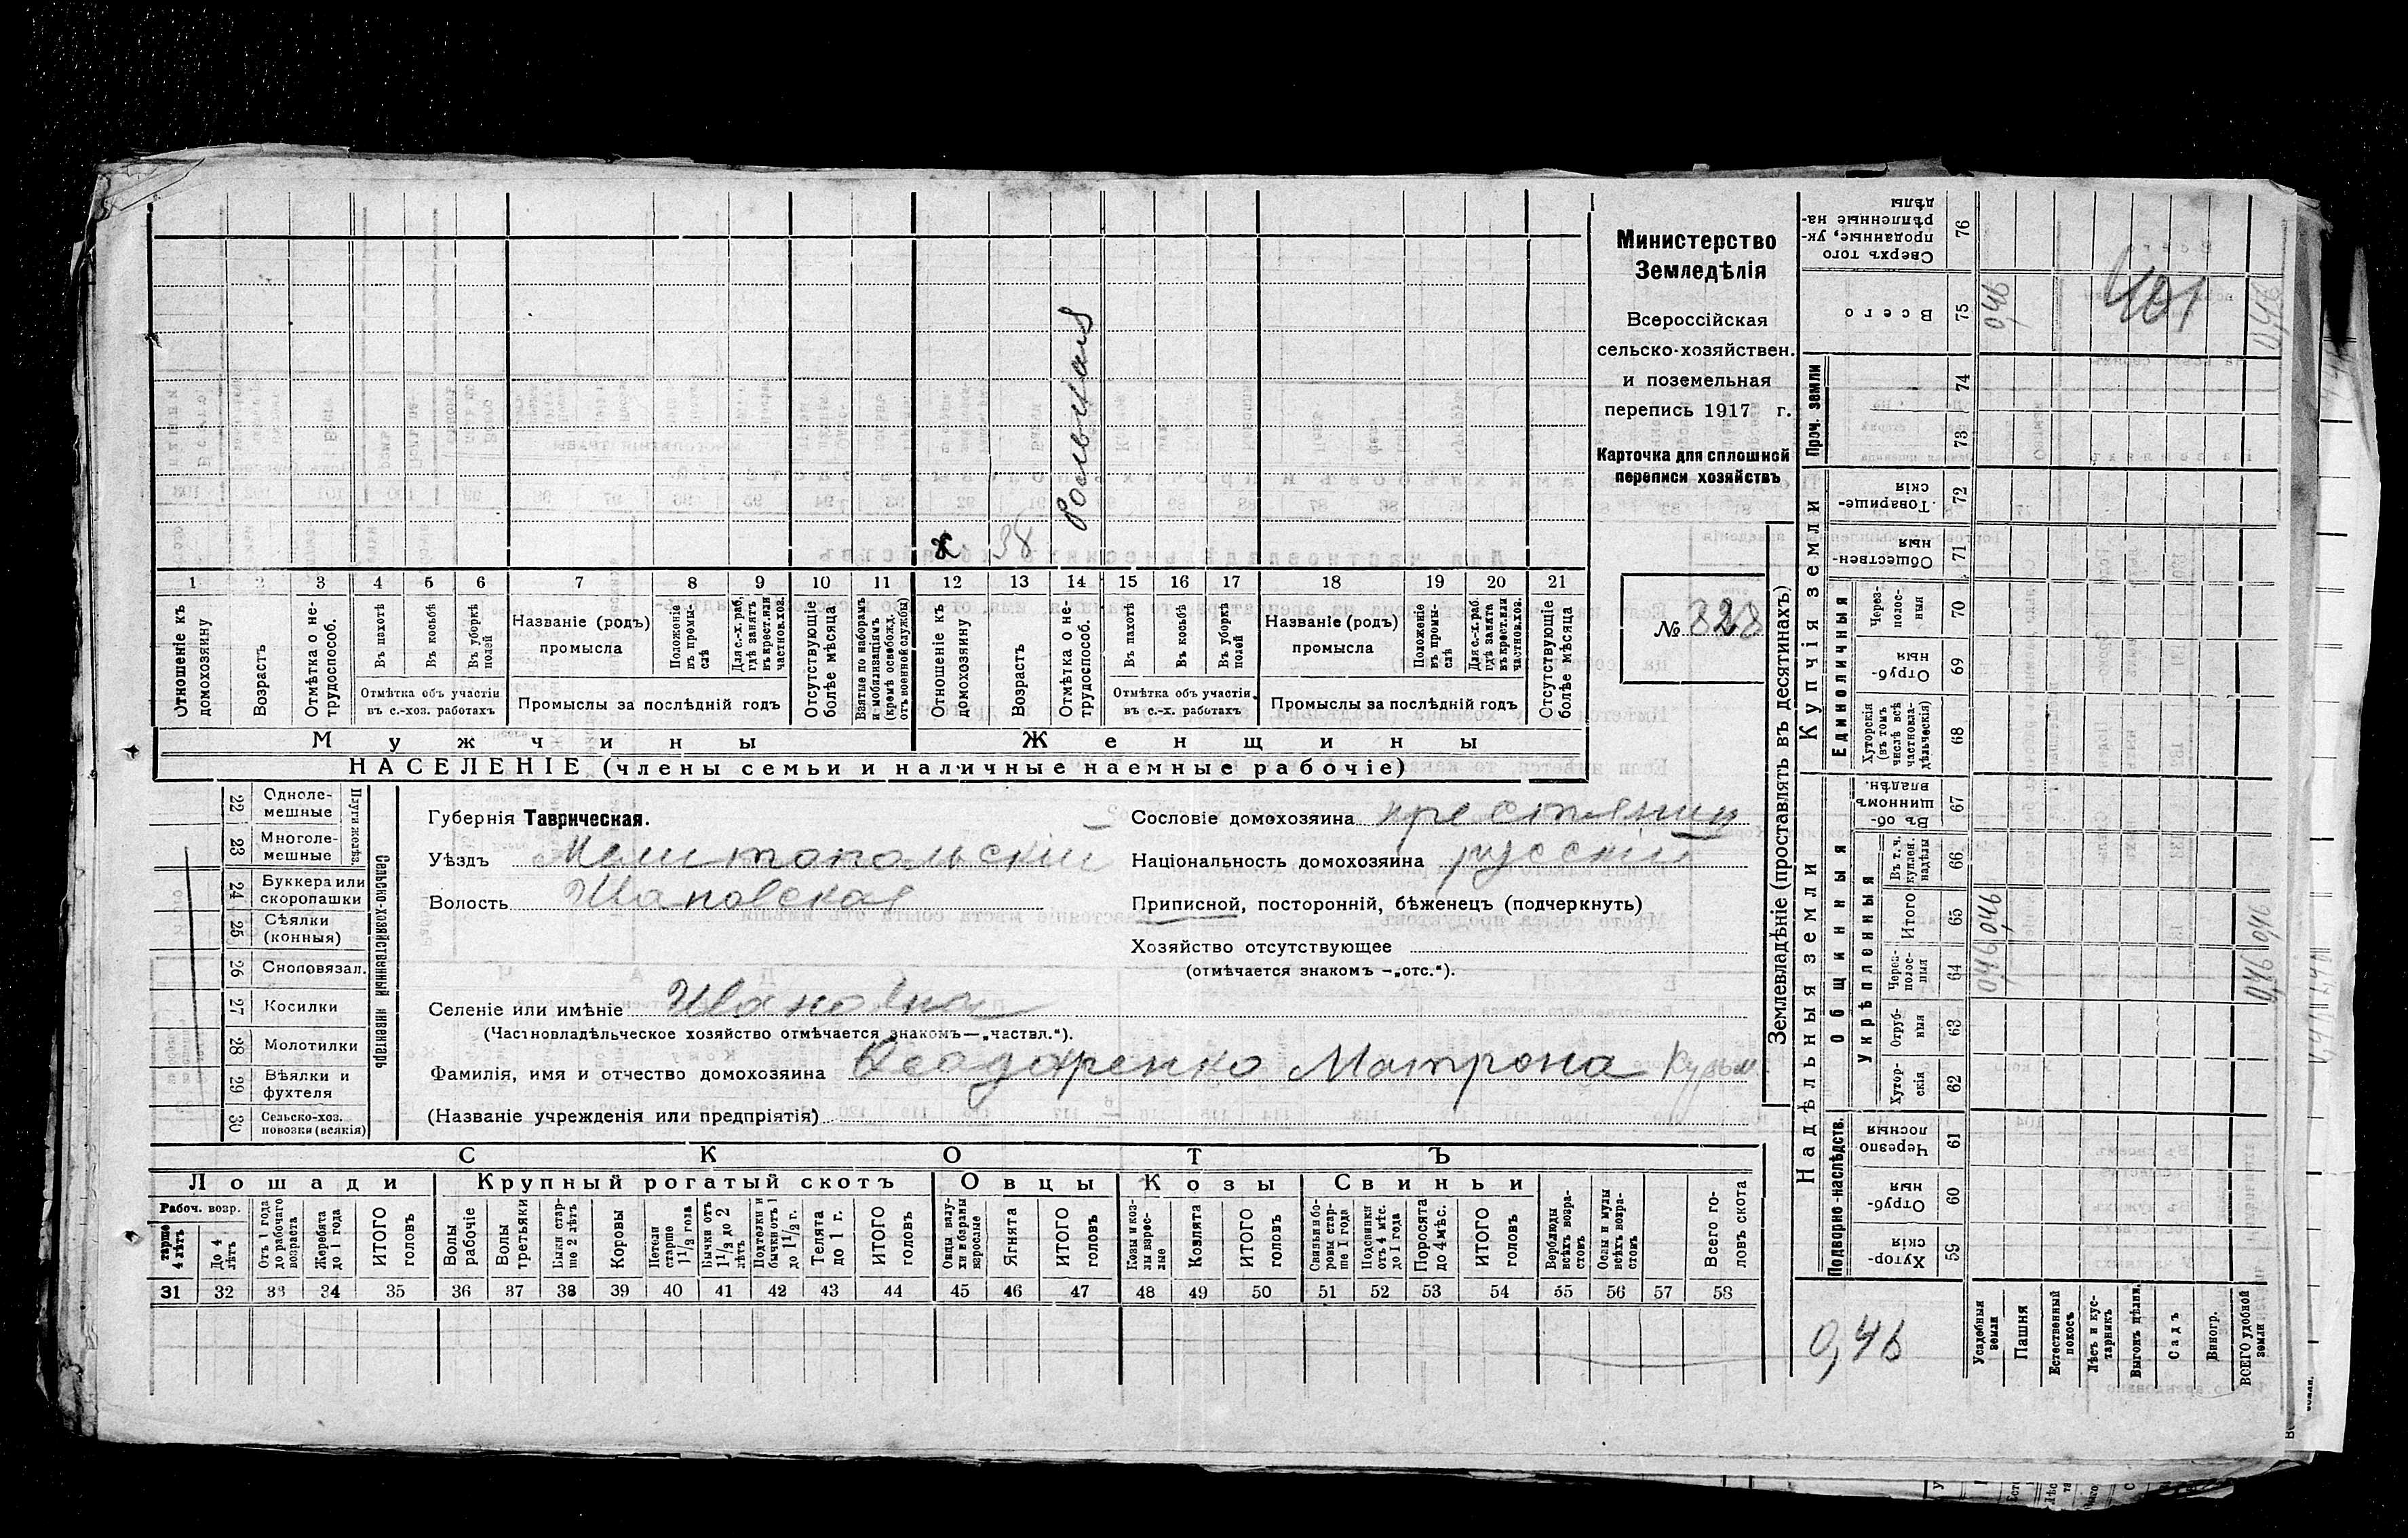 Министерство
Земледѣлія
Всероссійская
сельско-хозяйствен.
и поземельная
перепись 1917 г.
Карточка для сплошной
переписи хозяйствъ
№ 328
х 38 больная
1 2 3 4 5 6 7 8 9 10 11 12 13 14 15 16 17 18 19 20 21
Отношеніе къ домохозяину
Возрастъ
Отмѣтка о не-трудоспособ.
Въ пахотѣ
Въ косьбѣ
Въ уборкѣ полей
Отмѣтка объ участіи въ с.-хоз. работахъ
Названіе (родъ) промысла
Положеніе въ промы-слѣ
Для с.-х. раб, гдѣ занятъ въ крест. или частнов. хоз.
Промыслы за послѣдній годъ
Отсутствующіе болѣе мѣсяца
Взятые по наборамъ и мобилизаціямъ (кромѣ освобожд. отъ военной службы)
Отношеніе къ домохозяину
Возрастъ
Отмѣтка о не-трудоспособ.
Въ пахотѣ
Въ косьбѣ
Въ уборкѣ полей
Отмѣтка объ участіи въ с.-х. работахъ
Названіе (родъ) промысла
Положеніе въ промы-слѣ
Для с.-х. раб. гдѣ занята въ крест. или частнов. хоз.
Промыслы за послѣдній годъ
Отсутствующіе болѣе мѣсяца
Мужчины Женщины
НАСЕЛЕНІЕ (члены семьи и наличные наемные рабочіе)
22 Однолемешные
23 Многолемешные
Плуги желѣз.
24 Буккера или скоропашки
25 Сѣялки (конныя)
26 Сноповязал.
27 Косилки
28 Молотилки
29 Вѣялки и фухтеля
30 Сельско-хоз. повозки (всякія)
Сельско-хозяйственный инвентарь
Губернія Таврическая.
Уѣздъ Мелитопольскій
Волость
Селеніе или имѣніе
(Частновладѣльческое хозяйство отмѣчается знакомъ—„частвл.“).
Фамилія, имя и отчество домохозяина Феодоренко Матрона Кузьм
(Названіе учрежденія или предпріятія)
Сословіе домохозяина крестьянин
Національность домохозяина русскій
Приписной, посторонній, бѣженец (подчеркнуть)
Хозяйство отсутствующее
(отмѣчается знакомъ —„отс.“).
СКОТЪ
Лошади Крупный рогатый скотъ Овцы Козы Свиньи
Рабоч. возр.
старше 4 лѣтъ
До 4 лѣтъ
Отъ 1 года до рабочаго возраста
Жеребята до 1 года
ИТОГО головъ
Волы рабочіе
Волы третьяки
Быки стар-ше 2 лѣтъ
Коровы
Нетели старше 1 1/2 года
Бычки отъ 1 1/2 до 2 лѣтъ
Подтелки и бычки отъ 1 до 1 1/2 г.
Телята до 1 г.
ИТОГО головъ
Овцы валу-хи и бараны взрослые
Ягнята
ИТОГО головъ
Козы и коз-лы взрос-лые
Козлята
ИТОГО головъ
Свиньи и бо-ровы стар-ше 1 года
Подсвинки отъ 4 мѣс. до 1 года
Поросята до 4 мѣс.
ИТОГО головъ
Верблюды всѣхъ возра-стовъ
Ослы и мулы всѣхъ возра-стовъ
Всего го-ловъ скота
31 32 33 34 35 36 37 38 39 40 41 42 43 44 45 46 47 48 49 50 51 52 53 54 55 56 57 58
Землевладѣніе (проставлять въ десятинахъ)
Купчія земли
Надѣльныя земли
Проч. земли
Единоличныя
Общинныя
укрѣпленныя
Подворно-наслѣдств.
Сверхъ того проданные, ук-рѣпленные на-дѣлы 76
Всего 75 0,46 401 0,46
74
73
Товарище-скія 72
Обществен-ныя 71
Через-полос-ныя 70
Отруб-ныя 69
Хуторскія (въ томъ числѣ всѣ частновла-дѣльческія) 68
Въ об-щинномъ владѣн. 67
Въ т. ч. куплен. надѣлы 66
Итого 65 0,46 0,46
Через-полос-ныя 64 0,46 0,46
Отруб-ныя 63
Хутор-скія 62
Черезпо лосныя 61
Отруб-ныя 60
Хутор-скія 59
0,46
Усадебныя земли
Пашня
Естественный покосъ
Лѣсъ и кус-тарникъ
Выгонъ цѣлин.
Садъ
Виногр.
ВСЕГО удобной земли